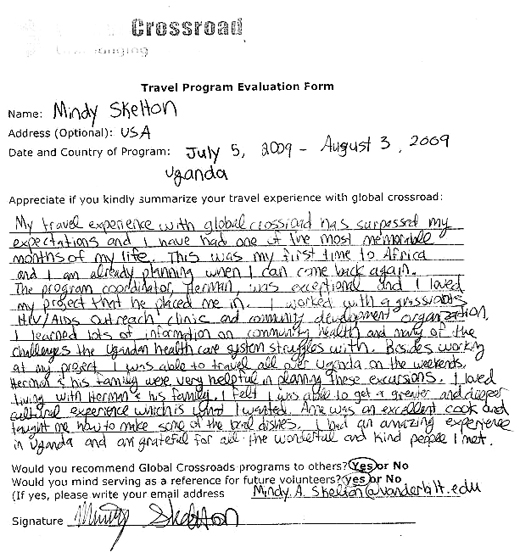 Crossroad
Travel Program Evaluation Form
Name: Mindy Skelton
Address (Optional): USA
Date and Country of Program: July 5, 2009 - August 3, 2009
Uganda
Appreciate if you kindly summarize your travel experience with global crossroad:
My travel experience with global crossroad has surpassed my
expectations and I have had one of the most memorable
months of my life. This was my first time to Africa
and I am already planning when I can come back again.
The program coordinator, Herman, was exceptional and I loved
my project that he placed me in. I worked with a grassroots
HIV/AIDS outreach clinic and community development organization.
I learned lots of information on community health and many of the
challenges the Ugandan health care system struggles with. Besides working
at my project, I was able to travel all over Uganda on the weekends.
Herman & his family were very helpful in planning these excursions. I loved
living with Herman & his family. I felt I was able to get a greater and deeper
cultural experience which is what I wanted. was an excellent cook and
taught me how to make some of the local dishes. I had an amazing experience
in Uganda and am grateful for all the wonderful and kind people I met.
Would you recommend Global Crossroads programs to others? Yes or No
Would you mind serving as a reference for future volunteers? yes or No
(If yes, please write your email address Mindy.A.Skelton@vanderbilt.edu
Signature Mindy Skelton